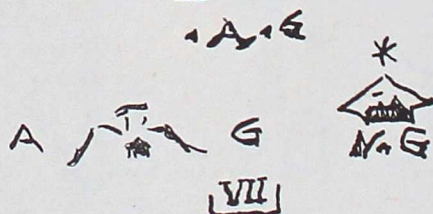 ·A·G
A G
N·G
VII